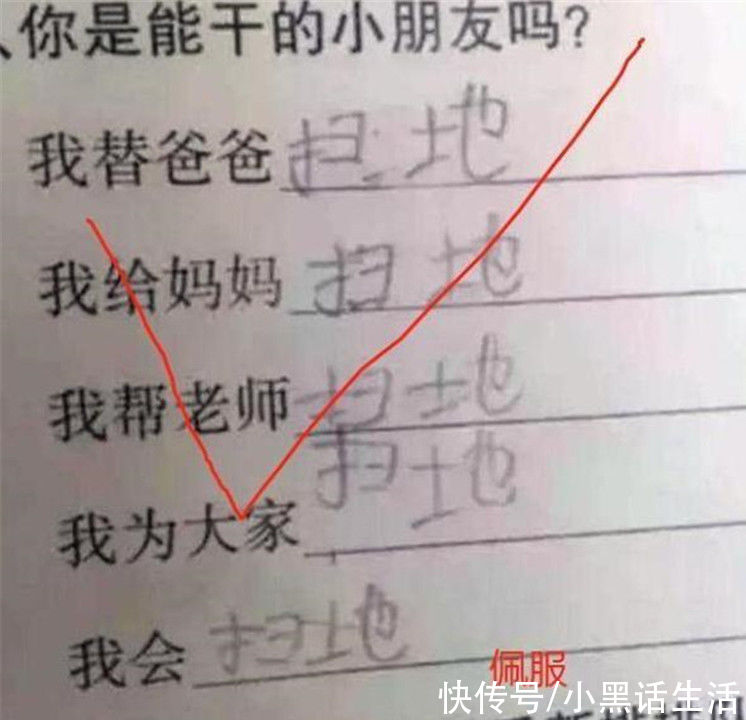 、你是能干的小朋友吗?
我替爸爸扫地
我给妈妈扫地
我帮老师扫地
我为大家扫地
我会扫地
佩服
快传号/小黑话生活